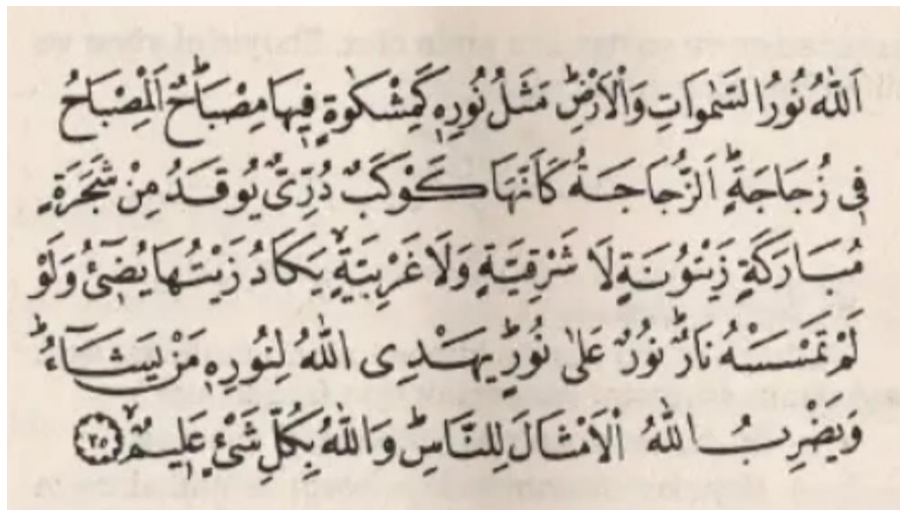 اَللّٰهُ نُورُ السَّمٰوَاتِ وَالْاَرْضِۜ مَثَلُ نُورِهٖ كَمِشْكٰوةٍ فٖيهَا مِصْبَاحٌۜ اَلْمِصْبَاحُ
فٖى زُجَاجَةٍۜ اَلزُّجَاجَةُ كَاَنَّهَا كَوْكَبٌ دُرِّىٌّ يُوقَدُ مِنْ شَجَرَةٍ
مُبَارَكَةٍ زَيْتُونَةٍ لَا شَرْقِيَّةٍ وَلَا غَرْبِيَّةٍۙ يَكَادُ زَيْتُهَا يُضٖٓئُ وَلَوْ
لَمْ تَمْسَسْهُ نَارٌۜ نُورٌ عَلٰى نُورٍۜ يَهْدِى اللّٰهُ لِنُورِهٖ مَنْ يَشَٓاءُۜ
وَيَضْرِبُ اللّٰهُ الْاَمْثَالَ لِلنَّاسِۜ وَاللّٰهُ بِكُلِّ شَیْءٍ عَلٖيمٌۙ ﴿٣٥﴾